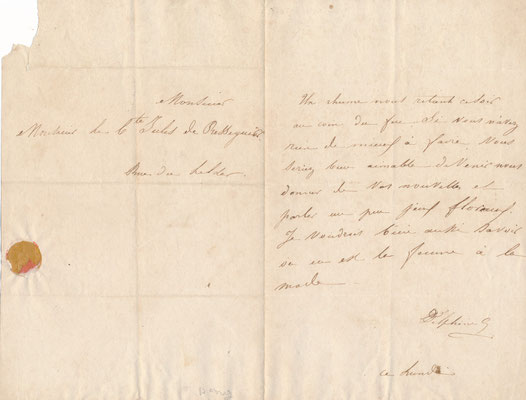 Monsieur
Monsieur le Cte Jules de Rességuier
Rue du helder.
Un rhume nous retient ce soir
au coin du feu. Si vous n'avez
rien de mieux à faire vous
seriez bien aimable de venir nous
donner de vos nouvelles et
parler un peu
Je voudrois bien aussi savoir
où en est la à la
mode.
Delphine G
ce lundi